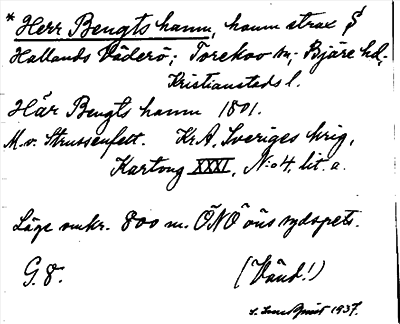 * Herr Bengts hamn, hamn strax S
Hallands Väderö; Torekov sn, Bjäre hd,
Kristianstads l.
Här Bengts hamn 1801.
M. v. Strussenfelt. Kr. A. Sveriges krig,
Kartong XXXI, N:o 4, lit. a.
Läge omkr. 800 m. ÖNÖ öns sydspets.
G. 8. (Vänd!)
S. Lundquist 1937.